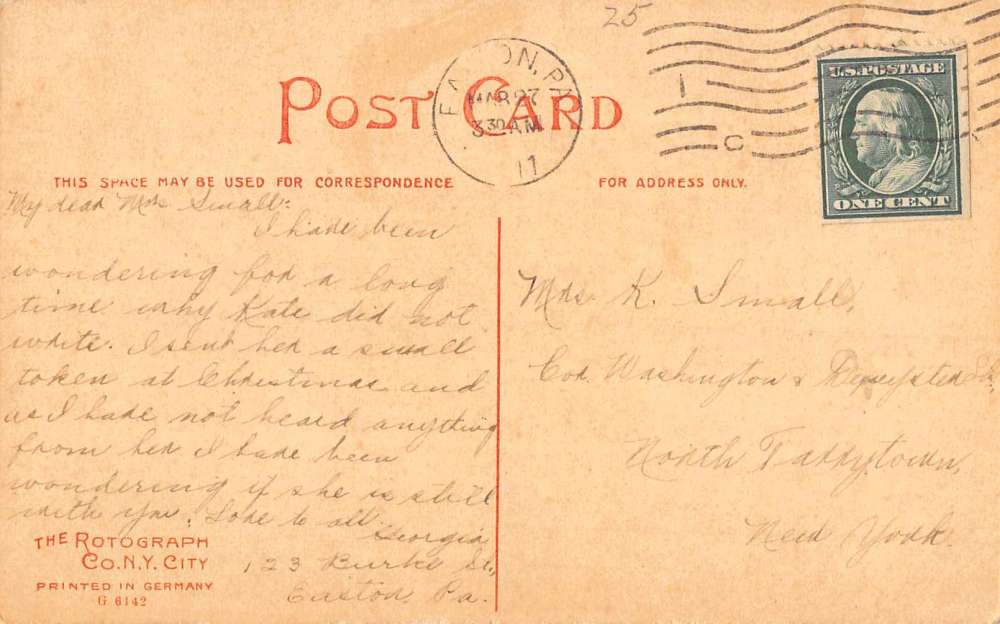 25
POST CARD
EASTON, PA.
MAR 27
3 30 AM
11
U.S. POSTAGE
ONE CENT
C
THIS SPACE MAY BE USED FOR CORRESPONDENCE
FOR ADDRESS ONLY.
My dear Mrs Small:
I have been
wondering for a long
time why Kate did not
write. I sent her a small
token at Christmas and
as I have not heard anything
from her I have been
wondering if she is still
with you. Love to all
Georgia
123 Burke St.,
Easton, Pa.
Mrs. K. Small,
Cor. Washington & Depeyster Sts,
North Tarrytown,
New York.
THE ROTOGRAPH
CO. N.Y. CITY
PRINTED IN GERMANY
G 6142